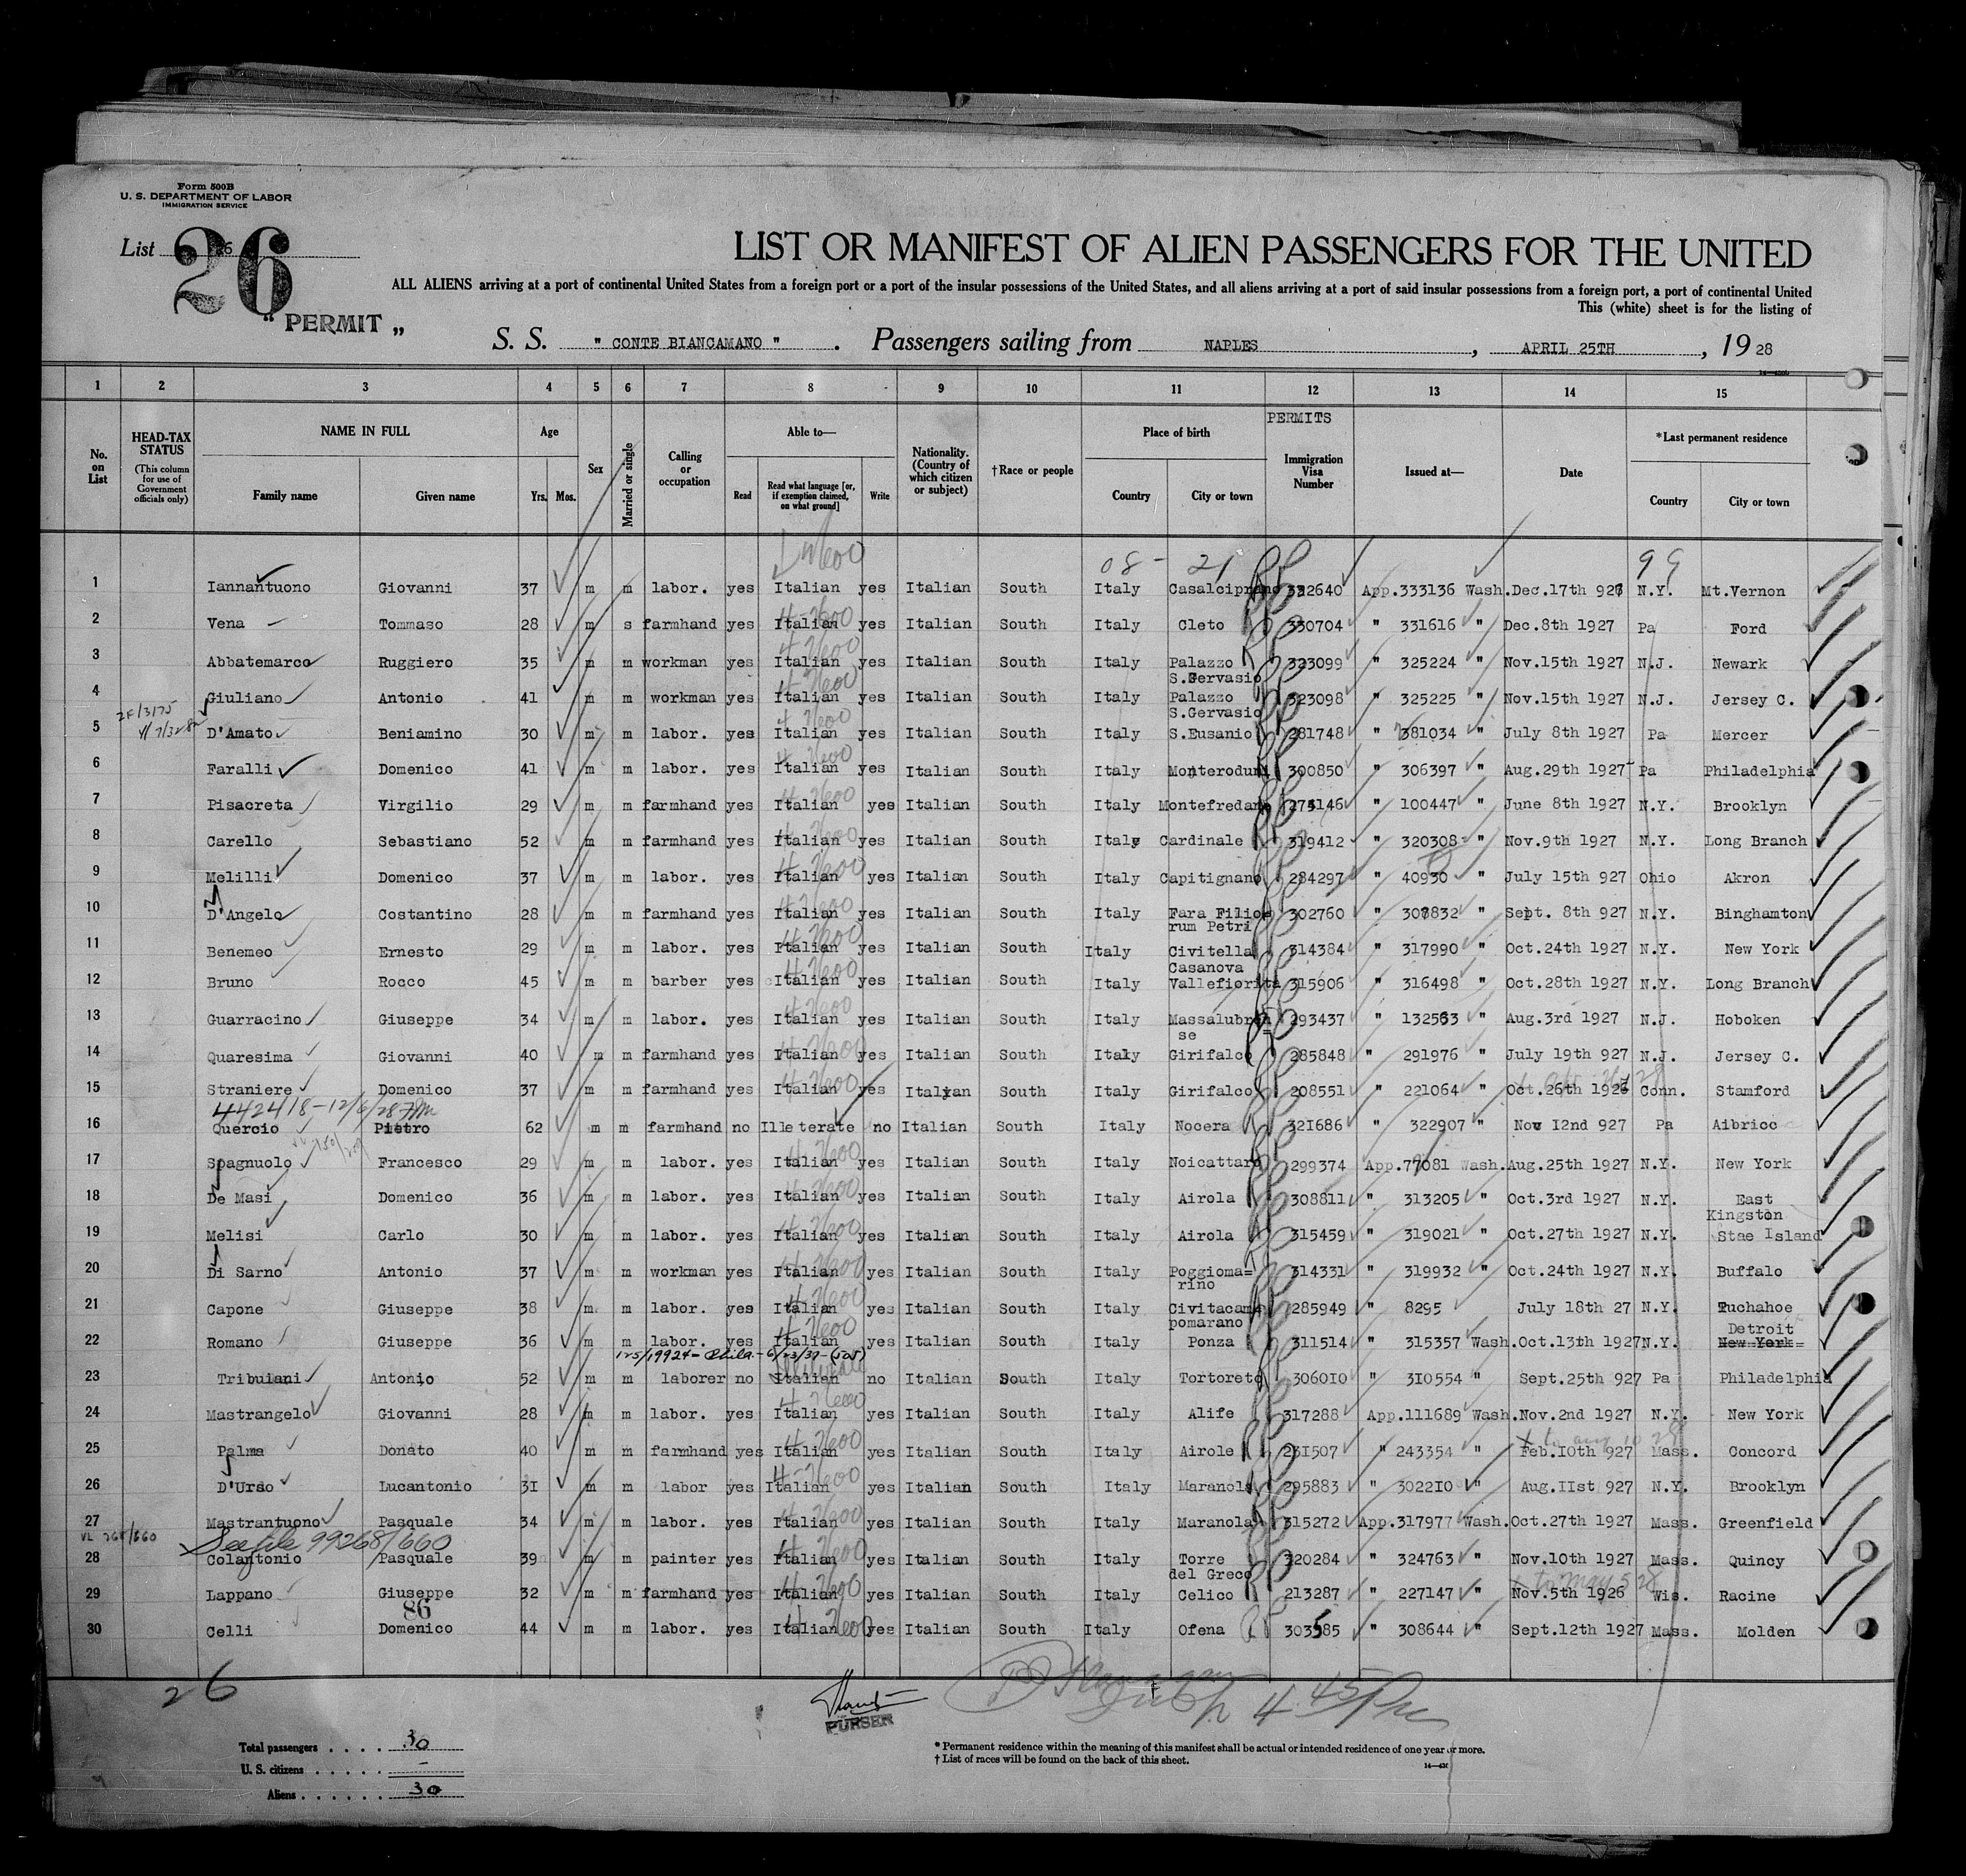 Form 500B
U. S. DEPARTMENT OF LABOR
IMMIGRATION SERVICE
List 26
26
" PERMIT "
LIST OR MANIFEST OF ALIEN PASSENGERS FOR THE UNITED
ALL ALIENS arriving at a port of continental United States from a foreign port or a port of the insular possessions of the United States, and all aliens arriving at a port of said insular possessions from a foreign port, a port of continental United
This (white) sheet is for the listing of
S. S. " CONTE BIANCAMANO ". Passengers sailing from NAPLES, APRIL 25TH, 19 28
1 2 3 4 5 6 7 8 9 10 11 12 13 14 15
No. on List
HEAD-TAX STATUS (This column for use of Government officials only)
NAME IN FULL Family name Given name
Age Yrs. Mos.
Sex
Married or single
Calling or occupation
Able to— Read Read what language [or, if exemption claimed, on what ground] Write
Nationality. (Country of which citizen or subject)
†Race or people
Place of birth Country City or town
PERMITS Immigration Visa Number
Issued at—
Date
*Last permanent residence Country City or town
08 - 21 99
1 Iannantuono Giovanni 37 m m labor. yes Italian yes Italian South Italy Casalciprano 322640 App.333136 Wash. Dec.17th 927 N.Y. Mt.Vernon
2 Vena Tommaso 28 m s farmhand yes Italian yes Italian South Italy Cleto 330704 " 331616 " Dec.8th 1927 Pa Ford
3 Abbatemarco Ruggiero 35 m m workman yes Italian yes Italian South Italy Palazzo S.Gervasio 323099 " 325224 " Nov.15th 1927 N.J. Newark
4 Giuliano Antonio 41 m m workman yes Italian yes Italian South Italy Palazzo S.Gervasio 323098 " 325225 " Nov.15th 1927 N.J. Jersey C.
5 D'Amato Beniamino 30 m m labor. yes Italian yes Italian South Italy S.Eusanio 281748 " 381034 " July 8th 1927 Pa Mercer
6 Faralli Domenico 41 m m labor. yes Italian yes Italian South Italy Monteroduni 300850 " 306397 " Aug.29th 1927 Pa Philadelphia
7 Pisacreta Virgilio 29 m m farmhand yes Italian yes Italian South Italy Montefredane 274146 " 100447 " June 8th 1927 N.Y. Brooklyn
8 Carello Sebastiano 52 m m farmhand yes Italian yes Italian South Italy Cardinale 319412 " 320308 " Nov.9th 1927 N.Y. Long Branch
9 Melilli Domenico 37 m m labor. yes Italian yes Italian South Italy Capitignano 284297 " 40930 " July 15th 927 Ohio Akron
10 D'Angelo Costantino 28 m m farmhand yes Italian yes Italian South Italy Fara Filio= rum Petri 302760 " 307832 " Sept. 8th 927 N.Y. Binghamton
11 Benemeo Ernesto 29 m m labor. yes Italian yes Italian South Italy Civitella Casanova 314384 " 317990 " Oct.24th 1927 N.Y. New York
12 Bruno Rocco 45 m m barber yes Italian yes Italian South Italy Vallefiorita 315906 " 316498 " Oct.28th 1927 N.Y. Long Branch
13 Guarracino Giuseppe 34 m m labor. yes Italian yes Italian South Italy Massalubren= se 293437 " 132563 " Aug.3rd 1927 N.J. Hoboken
14 Quaresima Giovanni 40 m m farmhand yes Italian yes Italian South Italy Girifalco 285848 " 291976 " July 19th 927 N.J. Jersey C.
15 Straniere Domenico 37 m m farmhand yes Italian yes Italyan South Italy Girifalco 208551 " 221064 " Oct.26th 1926 Conn. Stamford
16 Quercio Pietro 62 m m farmhand no Ille terate no Italian South Italy Nocera 321686 " 322907 " Nov 12nd 927 Pa Aibricc
17 Spagnuolo Francesco 29 m m labor. yes Italian yes Italian South Italy Noicattaro 299374 App.77081 Wash. Aug.25th 1927 N.Y. New York
18 De Masi Domenico 36 m m labor. yes Italian yes Italian South Italy Airola 308811 " 313205 " Oct.3rd 1927 N.Y. East Kingston
19 Melisi Carlo 30 m m labor. yes Italian yes Italian South Italy Airola 315459 " 319021 " Oct.27th 1927 N.Y. Stae Island
20 Di Sarno Antonio 37 m m workman yes Italian yes Italian South Italy Poggioma= rino 314331 " 319932 " Oct.24th 1927 N.Y. Buffalo
21 Capone Giuseppe 38 m m labor. yes Italian yes Italian South Italy Civitacam= pomarano 285949 " 8295 July 18th 27 N.Y. Tuchahoe
22 Romano Giuseppe 36 m m labor. yes Italian yes Italian South Italy Ponza 311514 " 315357 Wash. Oct.13th 1927 N.Y. Detroit New York
23 Tribuiani Antonio 52 m m laborer no Italian no Italian South Italy Tortoreto 306010 " 310554 " Sept.25th 927 Pa Philadelphia
24 Mastrangelo Giovanni 28 m m labor. yes Italian yes Italian South Italy Alife 317288 App.111689 Wash. Nov.2nd 1927 N.Y. New York
25 Palma Donato 40 m m farmhand yes Italian yes Italian South Italy Airole 231507 " 243354 " Feb.10th 927 Mass. Concord
26 D'Urso Lucantonio 31 m m labor yes Italian yes Italian South Italy Maranola 295883 " 302210 " Aug.IIst 927 N.Y. Brooklyn
27 Mastrantuono Pasquale 34 m m labor. yes Italian yes Italian South Italy Maranola 315272 App.317977 Wash. Oct.27th 1927 Mass. Greenfield
See file 99268/660
28 Colantonio Pasquale 39 m m painter yes Italian yes Italian South Italy Torre del Greco 320284 " 324763 " Nov.10th 1927 Mass. Quincy
29 Lappano Giuseppe 32 m m farmhand yes Italian yes Italian South Italy Celico 213287 " 227147 " Nov.5th 1926 Wis. Racine
86
30 Celli Domenico 44 m m labor. yes Italian yes Italian South Italy Ofena 303585 " 308644 " Sept.12th 1927 Mass. Molden
26
PURSER
Total passengers . . . . 30
U. S. citizens . . . . . –
Aliens . . . . . . 30
* Permanent residence within the meaning of this manifest shall be actual or intended residence of one year or more.
† List of races will be found on the back of this sheet.